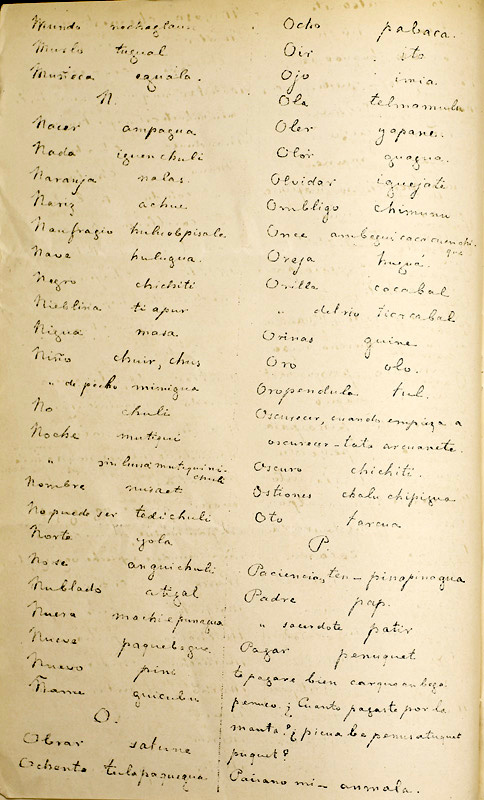 Mundo nechaglau
Muslo tugual
Muñeca equala.
N.
Nacer ampagua
Nada iquenchuli
Naranja nalas.
Nariz achue
Naufragio hulcobpisale
Nave hulugua.
Negro chichiti
Nieblina tiapur
Nigua masa
Niño chuir, chus
" de pecho mimigua
No chuli
Noche mutiqui
" sin luna mutiquini-
chuli
Nombre nusaet
No puede ser tedichuli
Norte yola
No se anguichuli
Nublado atigal
Nuera machiepunagua
Nueve paquebagui
Nuevo pini
Ñame quicubu
O.
Obrar satune
Ochenta tulapaquegua
Ocho pabaca.
Oir ito
Ojo imia.
Ola telmamulu
Oler yapane.
Olor guagua.
Olvidar iquejati
Ombligo chimunu
Once ambeguicacacuenchi-
gua
Oreja huguá.
Orilla cacabal
" del rio ticacabal
Orinas quine
Oro olo.
Oropendula tul.
Oscurecer, cuando empieza a
oscurecer - tata arcuanete.
Oscuro chichiti.
Ostiones chalu chipigua
Oto tarcua
P
Paciencia, ten - pinapinagua
Padre pap.
" sacerdote patir
Pagar penuquet
te pagaré bien carguan bega
penuco. ¿Cuanto pagaste por la
manta? ¿picua be penusatuquet
puquet?
Paisano mi - anmala.